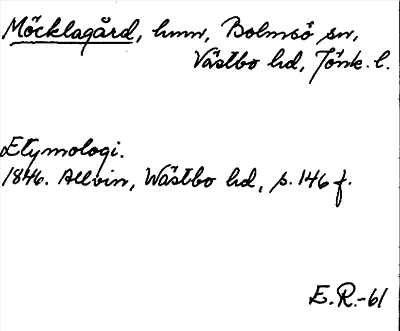 Möcklagård, hmn, Bolmsö sn,
Västbo hd, Jönk. l.
Etymologi.
1846. Allvin, Wästbo hd, s. 146 f.
E. R. -61